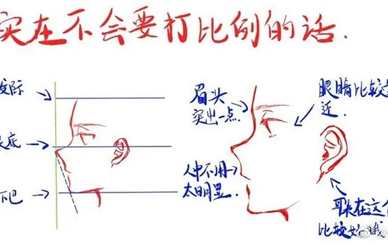 实在不会要打比例的话.
发际
眉头
突出一点.
眼睛比较
近
底
人中不用
太明显.
下巴
耳朵在这个
比较好